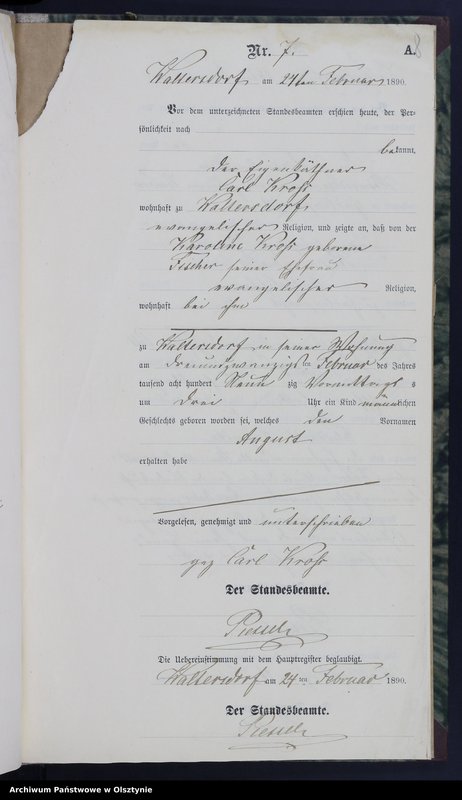 Nr. 7.
A. 8
Waltersdorf am 24ten Februar 1890.
Vor dem unterzeichneten Standesbeamten erschien heute, der Per-
sönlichkeit nach
bekannt,
der Eigenkäthner
Carl Kroß
wohnhaft zu Waltersdorf
evangelischer Religion, und zeigte an, daß von der
Karoline Kroß geborene
Fischer seiner Ehefrau
evangelischer Religion,
wohnhaft bei ihm
zu Waltersdorf in seiner Wohnung
am dreiundzwanzigsten Februar des Jahres
tausend acht hundert Neunzig Vormittags
um drei Uhr ein Kind männlichen
Geschlechts geboren worden sei, welches den Vornamen
August
erhalten habe
Vorgelesen, genehmigt und unterschrieben
gez Carl Kroß
Der Standesbeamte.
Die Uebereinstimmung mit dem Hauptregister beglaubigt.
Waltersdorf am 24ten Februar 1890.
Der Standesbeamte.
Archiwum Państwowe w Olsztynie